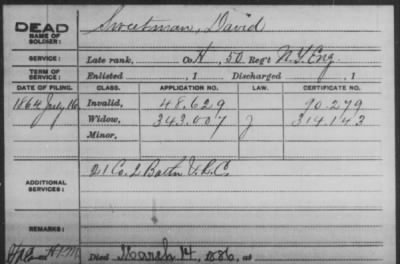 DEAD
NAME OF
SOLDIER:
Sweetman, David
SERVICE:
Late rank, Co. H, 50 Reg't N.Y. Eng.
TERM OF
SERVICE:
Enlisted , 1 Discharged , 1
DATE OF FILING. CLASS. APPLICATION NO. LAW. CERTIFICATE NO.
1864 July 16 Invalid, 48.629 70.279
Widow, 343.007 314.143
Minor,
ADDITIONAL
SERVICES:
21 Co. 2 Batn V.R.C.
REMARKS:
Died March 14, 1886, at